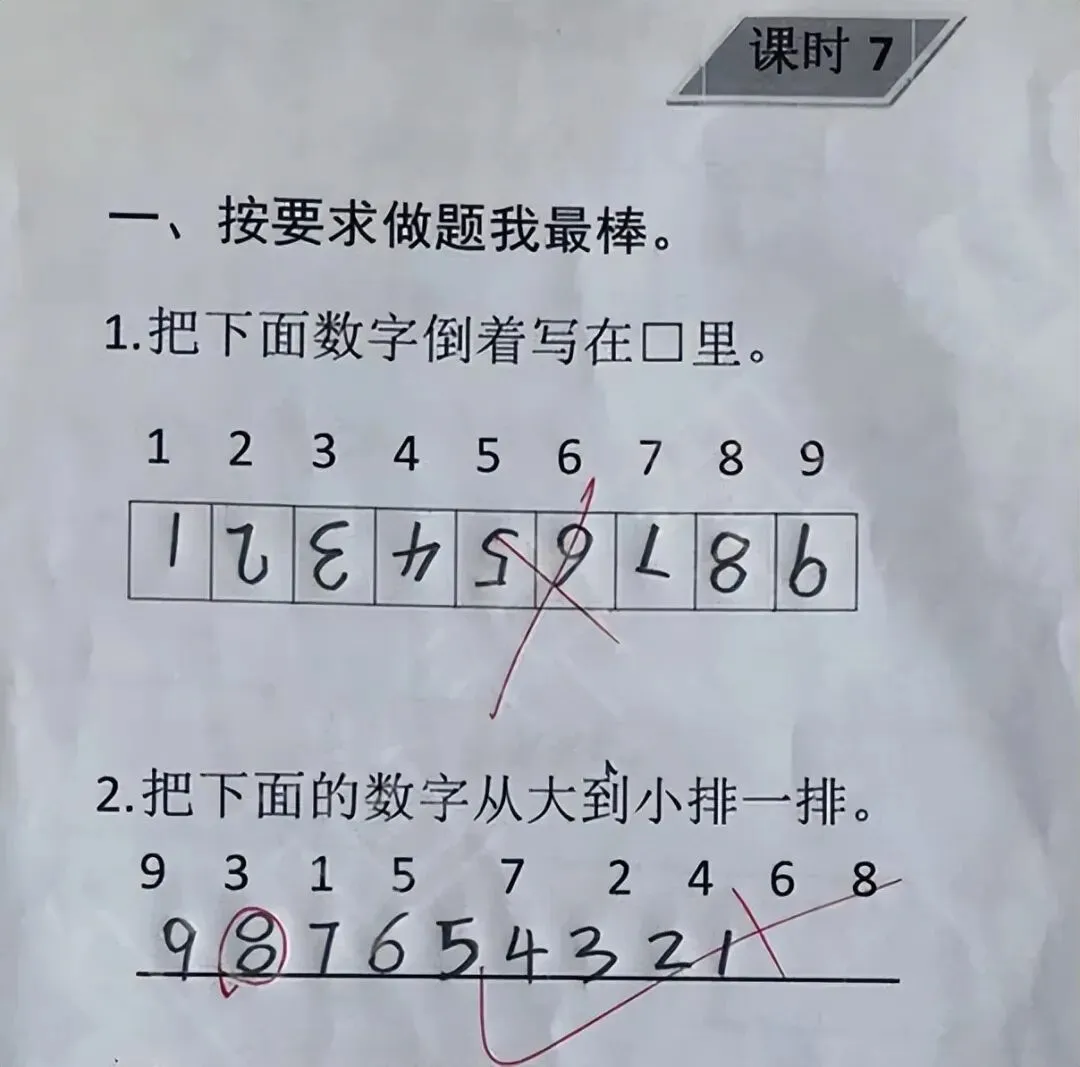 课时 7
一、按要求做题我最棒。
1.把下面数字倒着写在□里。
1 2 3 4 5 6 7 8 9
1 2 3 4 5 6 7 8 9
2.把下面的数字从大到小排一排。
9 3 1 5 7 2 4 6 8
9 8 7 6 5 4 3 2 1